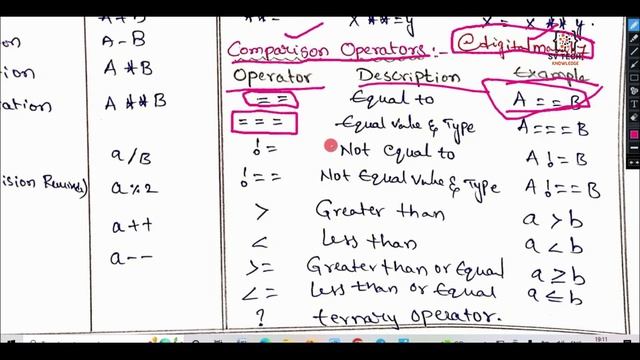 **= X **=y X = X ** y.
on A - B Comparison Operators:- @digital
SV TECH
KNOWLEDGE
Operator Description Example
ion A * B == Equal to A == B
ration A ** B === Equal value & Type A === B
a/B != Not equal to A != B
ision Remainder) a%2 !== Not Equal value & Type A !== B
a++ > Greater than a > b
a-- < less than a < b
>= Greater than or Equal a ≥ b
<= less than or Equal a ≤ b
? ternary operator.
19:11